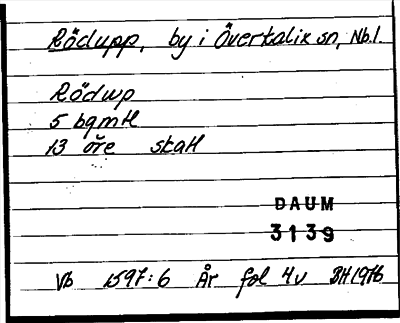 Rödupp, by i Överkalix sn, Nb.l.
Rödwp
5 bgmH
13 öre skatt
DAUM
3139
Vb 1597:6 År fol 4v BH 1976